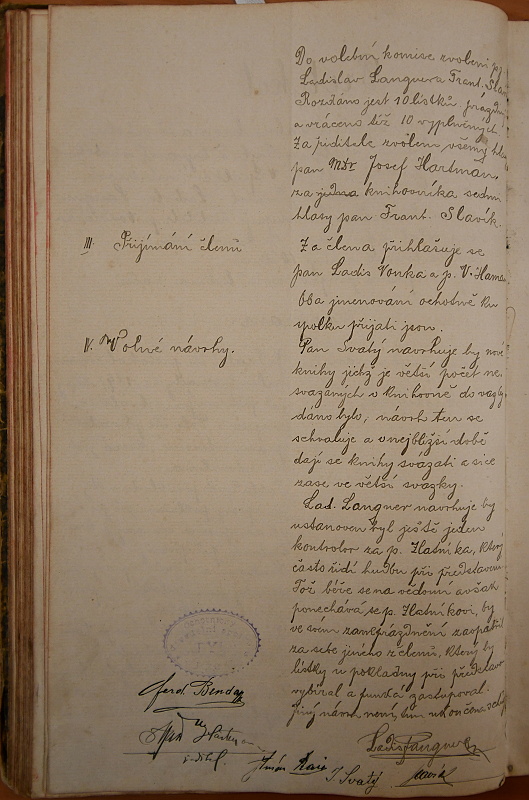 Do volební komise zvoleni pp.
Ladislav Langner a Frant. Slav
Rozdáno jest 10 lístků prázdn
a vráceno též 10 vyplněných.
Za řiditele zvolen všemy hla
pan MDr Josef Hartman,
za knihovníka sedmi
hlasy pan Frant. Slavík.
III. Přijímání členů
Za člena přihlašuje se
pan Ladis Vonka a p. V. Hama
Oba jmenování ochotně ku
spolku přijati jsou.
IV. Volné návrhy.
Pan Svatý navrhuje by nové
knihy jichž je větší počet ne
svázaných v knihovně do vazby
dáno bylo, návrh ten se
schvaluje a v nejbližší době
dají se knihy svázati a sice
zase ve větší svazky.
Lad. Langner navrhuje by
ustanoven byl ještě jeden
kontrolor za p. Zlatníka, který
často řídí hudbu při představení
Též béře se na vědomí avšak
ponechává se p. Zlatníkovi, by
ve svém zaneprázdnění zaopatřil
za sebe jiného z členů, který by
lístky u pokladny při představ
vybíral a zastupoval.
Jiný návrh není, tím
Ferd. Benda
Ladis Langner
řiditel.
J. Svatý
Slavík